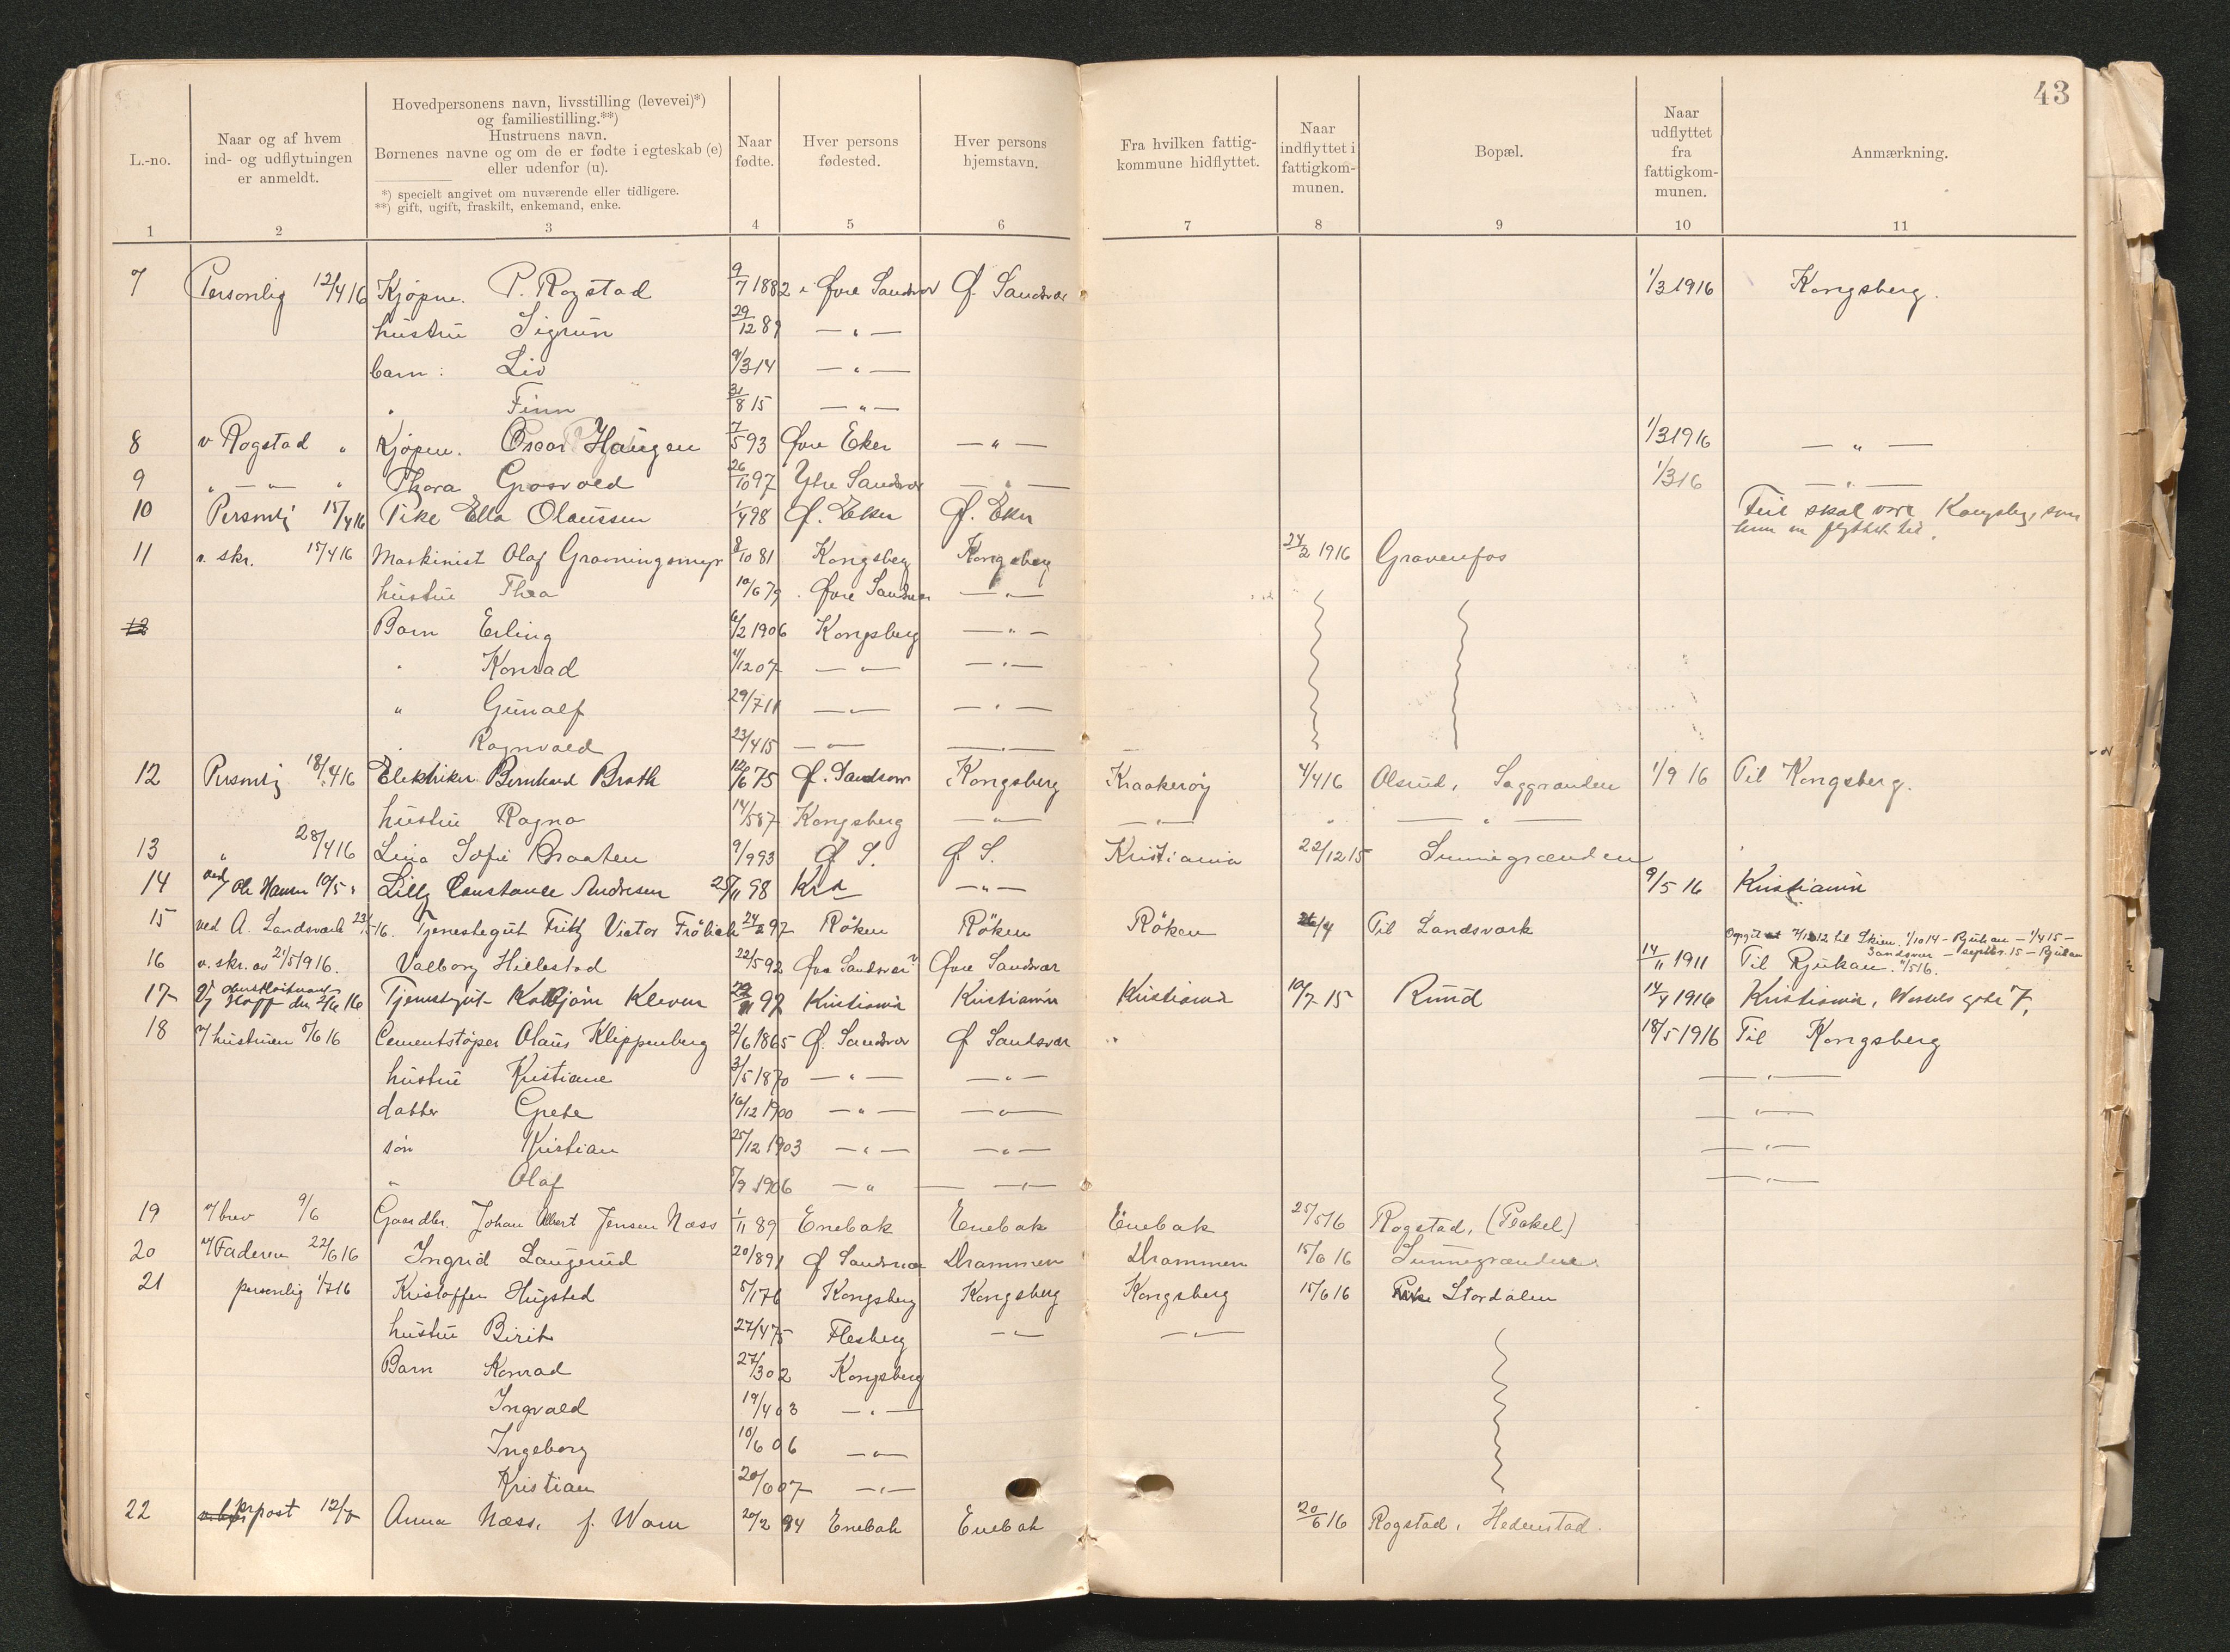 43
L.-no.
Naar og af hvem
ind- og udflytningen
er anmeldt.
Hovedpersonens navn, livsstilling (levevei)*)
og familiestilling.**)
Hustruens navn.
Børnenes navne og om de er fødte i egteskab (e)
eller udenfor (u).
*) specielt angivet om nuværende eller tidligere.
**) gift, ugift, fraskilt, enkemand, enke.
Naar
fødte.
Hver persons
fødested.
Hver persons
hjemstavn.
Fra hvilken fattig-
kommune hidflyttet.
Naar
indflyttet i
fattigkom-
munen.
Bopæl.
Naar
udflyttet
fra
fattigkom-
munen.
Anmærkning.
1 2 3 4 5 6 7 8 9 10 11
7 Personlig 12/4 16 Kjøpm. P. Rogstad 9/7 1882 Øvre Sandsvær Ø. Sandsvær 1/3 1916 Kongsberg.
hustru Sigrun 29/12 89 — " —
barn: Liv 9/3 14 — " —
" Finn 31/8 15 — " —
8 v Rogstad " Kjøpm. Oscar Haugen 7/5 93 Øvre Eker — " — 1/3 1916 — " —
9 " — " — " Thora Grosvold 26/10 97 Ytre Sandsvær — " — 1/3 16 — " —
10 Personlig 15/4 16 Pike Ella Olaussen 1/4 98 Ø. Eker Ø. Eker Feil skal være Kongsberg som
hun er flyttet til.
11 v. skr. 15/4 16 Maskinist Olaf Gramingsmyr 8/10 81 Kongsberg Kongsberg 24/2 1916 Gravenfos
hustru Thea 10/6 79 Øvre Sandsvær — " —
12 Barn Erling 6/2 1906 Kongsberg — " —
" Konrad 4/12 07 — " — — " —
" Gunalf 29/7 11 — " — — " —
" Ragnvald 23/4 15 — " — — " —
12 Personlig 18/4 16 Elektriker Bernhard Brath 12/6 75 Ø. Sandsvær Kongsberg Kraakerøy 4/4 16 Olsrud, Saggrenden 1/9 16 Til Kongsberg.
hustru Ragna 14/5 87 Kongsberg — " — — " — " — " —
13 " 28/4 16 Lina Sofie Braaten 9/9 93 Ø S. Ø. S. Kristiania 22/12 15 Summegrenden
14 ved Ole Hansen 10/5 " Lilly Constance Andresen 25/11 98 Kra — " — 9/5 16 Kristiania
15 ved A. Landsverk 23/5 16. Tjenestegut Fritz Victor Frölich 24/2 97 Röken Röken Röken 26/4 Til Landsverk
16 v. skr. av 21/5 1916. Valborg Hillestad 22/5 92 Øvre Sandsvær? Øvre Sandsvær 14/11 1911 Til Rjukan 4/5 16.
17 Hoff den 2/6 16 Tjenestgut Kolbjørn Kleven 97 Kristiania Kristiania Kristiania 10/7 15 Ruud 14/4 1916 Kristiania, Wessels gate 7.
18 v/ hustruen 5/6 16 Cementstøper Olaus Klippenberg 2/6 1865 Ø. Sandsvær Ø Sandsvær " 18/5 1916 Til Kongsberg
hustru Kristiane 3/5 1870 — " — — " — — " —
datter Grete 16/12 1900 — " — — " — — " —
søn Kristian 25/12 1903 — " — — " — — " —
" Olaf 5/9 1906 — " — — " — — " —
19 v/ brev 9/6 Gaardbr. Johan Albert Jensen Næss 1/11 89 Enebak Enebak Enebak 25/5 16 Rogstad, (Peakel)
20 v/ Faderen 22/6 16 Ingrid Laugerud 20/8 91 Ø Sandsvær Drammen Drammen 15/6 16 Summegrenden
21 personlig 1/7 16 Kristoffer Hugsted 5/1 76 Kongsberg Kongsberg Kongsberg 15/6 16 Stordalen
hustru Birit 27/4 75 Flesberg — " — — " —
Barn Konrad 27/3 02 Kongsberg
Ingvald 19/4 03 — " —
Ingeborg 10/6 06 — " —
Kristian 20/6 07 — " —
22 pr post 12/7 Anna Næss, f. Wam 20/2 94 Enebak Enebak 20/6 16 Rogstad, Hedenstad.